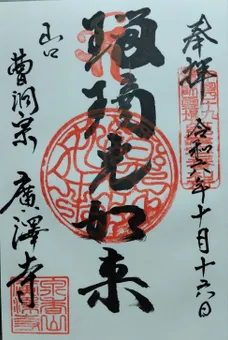 奉拝
令和六年十月十六日
瑠璃光如来
山口
曹洞宗
廣澤寺